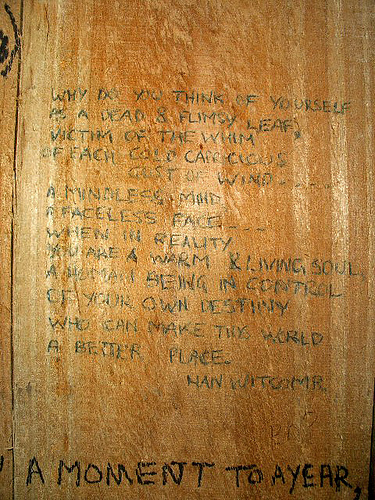 WHY DO YOU THINK OF YOURSELF
AS A DEAD & FLIMSY LEAF,
VICTIM OF THE WHIM
OF EACH COLD CAPRICIOUS
GUST OF WIND-----
A MINDLESS MIND
A FACELESS FACE----
WHEN IN REALITY
YOU ARE A WARM & LIVING SOUL
A HUMAN BEING IN CONTROL
OF YOUR OWN DESTINY
WHO CAN MAKE THIS WORLD
A BETTER PLACE.
A MOMENT TO A YEAR,